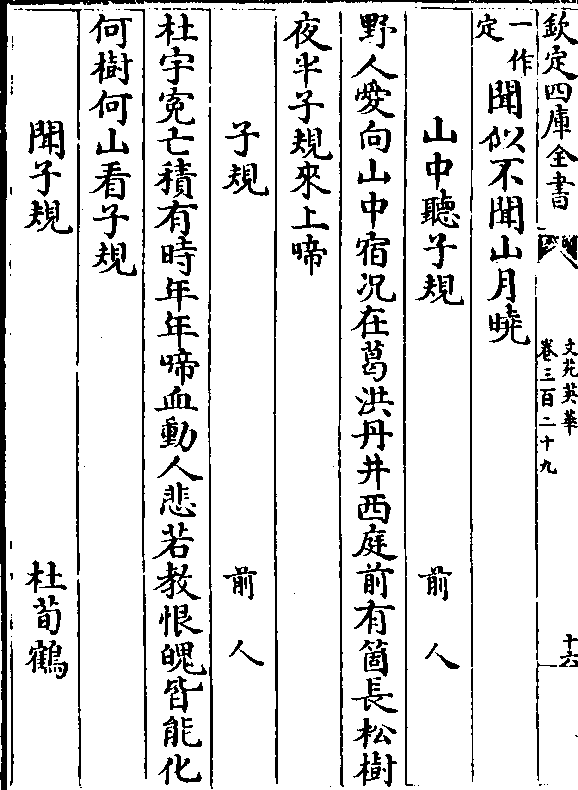 欽定四庫全書
文苑英華
卷三百二十九
十六
一作
定
聞似不聞山月曉
山中聽子規
前人
野人愛向山中宿况在葛洪丹井西庭前有箇長松樹
夜半子規來上啼
子規
前人
杜宇寃亡積有時年年啼血動人悲若教恨魄皆能化
何樹何山看子規
聞子規
杜荀鶴